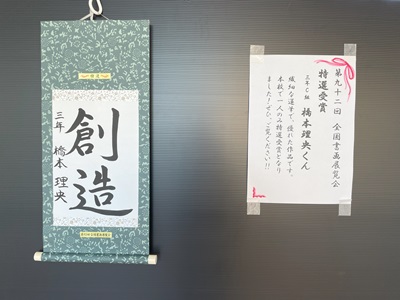 創造
三年 橋本 理央
第九十二回 全国書画展覧会
特選受賞
三年C組 橋本理央くん
繊細な運筆で、優れた作品です。
本校で一人のみ特選受賞となり
ました！ぜひ、ご覧ください!!